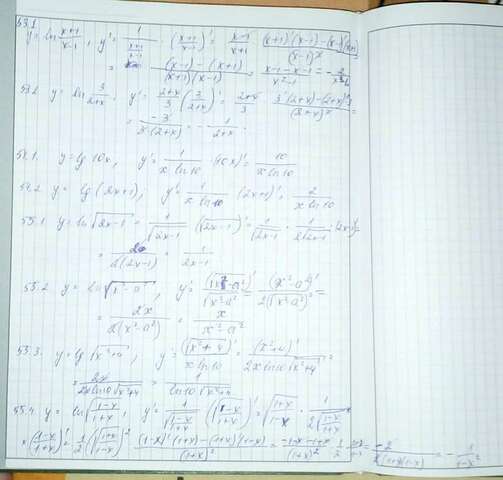 53.1.
y = ln (x+1)/(x-1), y' = 1/((x+1)/(x-1)) · ((x+1)/(x-1))' = (x-1)/(x+1) · ((x+1)'(x-1) - (x-1)'(x+1))/(x-1)²
= ((x-1) - (x+1))/((x+1)(x-1)) = (x-1-x-1)/(x²-1) = -2/(x²-1)
53.2. y = ln 3/(2+x). y' = (2+x)/3 · (3/(2+x))' = (2+x)/3 · (3'(2+x) - (2+x)'3)/(2+x)² =
= -3/(3(2+x)) = -1/(2+x).
54.1. y = lg 10x, y' = 1/(x ln10) · (10x)' = 10/(x ln10)
54.2 y = lg (2x+1); y' = 1/(x ln10) · (2x+1)' = 2/(x ln10)
55.1. y = ln √(2x-1) = 1/√(2x-1) · (√(2x-1))' = 1/√(2x-1) · 1/(2√(2x-1))
= 2/(2(2x-1)) = 1/(2x-1)
55.2. y = ln √(x²-a²), y' = (√(x²-a²))'/√(x²-a²) = (x²-a²)'/(2(√(x²-a²))²) =
= 2x/(2(x²-a²)) = x/(x²-a²)
55.3. y = lg √(x²+4), y' = (√(x²+4))'/(x ln10) = (x²+4)'/(2x ln10 √(x²+4)) =
= 2x/(2x ln10 √(x²+4)) = 1/(ln10 √(x²+4))
55.4. y = ln √((1-x)/(1+x)), y' = 1/√((1-x)/(1+x)) · (√((1-x)/(1+x)))' = √((1+x)/(1-x)) · 1/(2√((1-x)/(1+x))) ×
× ((1-x)/(1+x))' = 1/2 (√((1+x)/(1-x)))² · ((1-x)'(1+x) - (1+x)'(1-x))/(1+x)² = (-1-x-1+x)/(1+x)² · 1/2 · (1+x)/(1-x) = -2/(2(1+x)(1-x)) = -1/(1-x²)